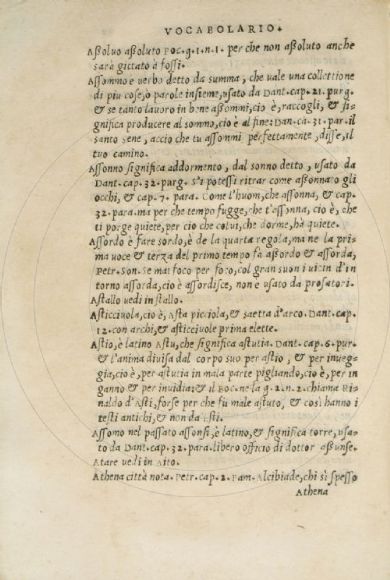 VOCABOLARIO.
Aſſoluo aſſoluto Boc. g. 1. n. 1. per che non aſſoluto anche
sarà gittato è foſſi.
Aſſommo e verbo detto da summa, che uale una collettione
di piu cose, ò parole insieme, usato da Dant. cap. 21. purg.
& se tanto lauoro in bene aſſommi, cio è, raccogli, & si-
gnifica producere al sommo, cio è al fine: Dan. ca. 31. par. il
santo sene, accio che tu aſſommi perfettamente, diſſe, il
tuo camino.
Aſſonno significa addormento, dal sonno detto, usato da
Dant. cap. 32. purg. s'i poteſſi ritrar come aſſonnaro gli
occhi, & cap. 7. para. Come l'huom, che aſſonna, & cap.
32. para. ma per che tempo fugge, che t'aſſonna, cio è, che
ti porge quiete, per cio che colui, che dorme, hà quiete.
Aſſordo è fare sordo, è de la quarta regola, ma ne la pri-
ma uoce & terza del primo tempo fà aſſordo & aſſorda,
Petr. Son. Se mai foco per foco, col gran suon i uicin d'in
torno aſſorda, cio è aſſordisce, non è usato da prosatori.
Aſtallo uedi in stallo.
Aſticciuola, cio è, aſta picciola, & saetta d'arco. Dant. cap.
12. con archi, & aſticciuole prima elette.
Aſtio, è latino Aſtu, che significa aſtutia. Dant. cap. 6. pur.
& l'anima diuisa dal corpo suo per aſtio, & per inueg-
gia, cio è, per aſtutia in mala parte pigliando, cio è, per in
ganno & per inuidia: & il Boc. ne la g. 2. n. 2. chiama Ri-
naldo d'Aſti, forse per che fù male aſtuto, & cosi hanno i
teſti antichi, & non da Eſti.
Aſſomo nel paſſato aſſonsi, è latino, & significa torre, usa-
to da Dant. cap. 32. para. libero officio di dottor aſſunse.
Atare uedi in Aito.
Athena città nota. Petr. cap. 2. Fam. Alcibiade, che sì speſſo
Athena